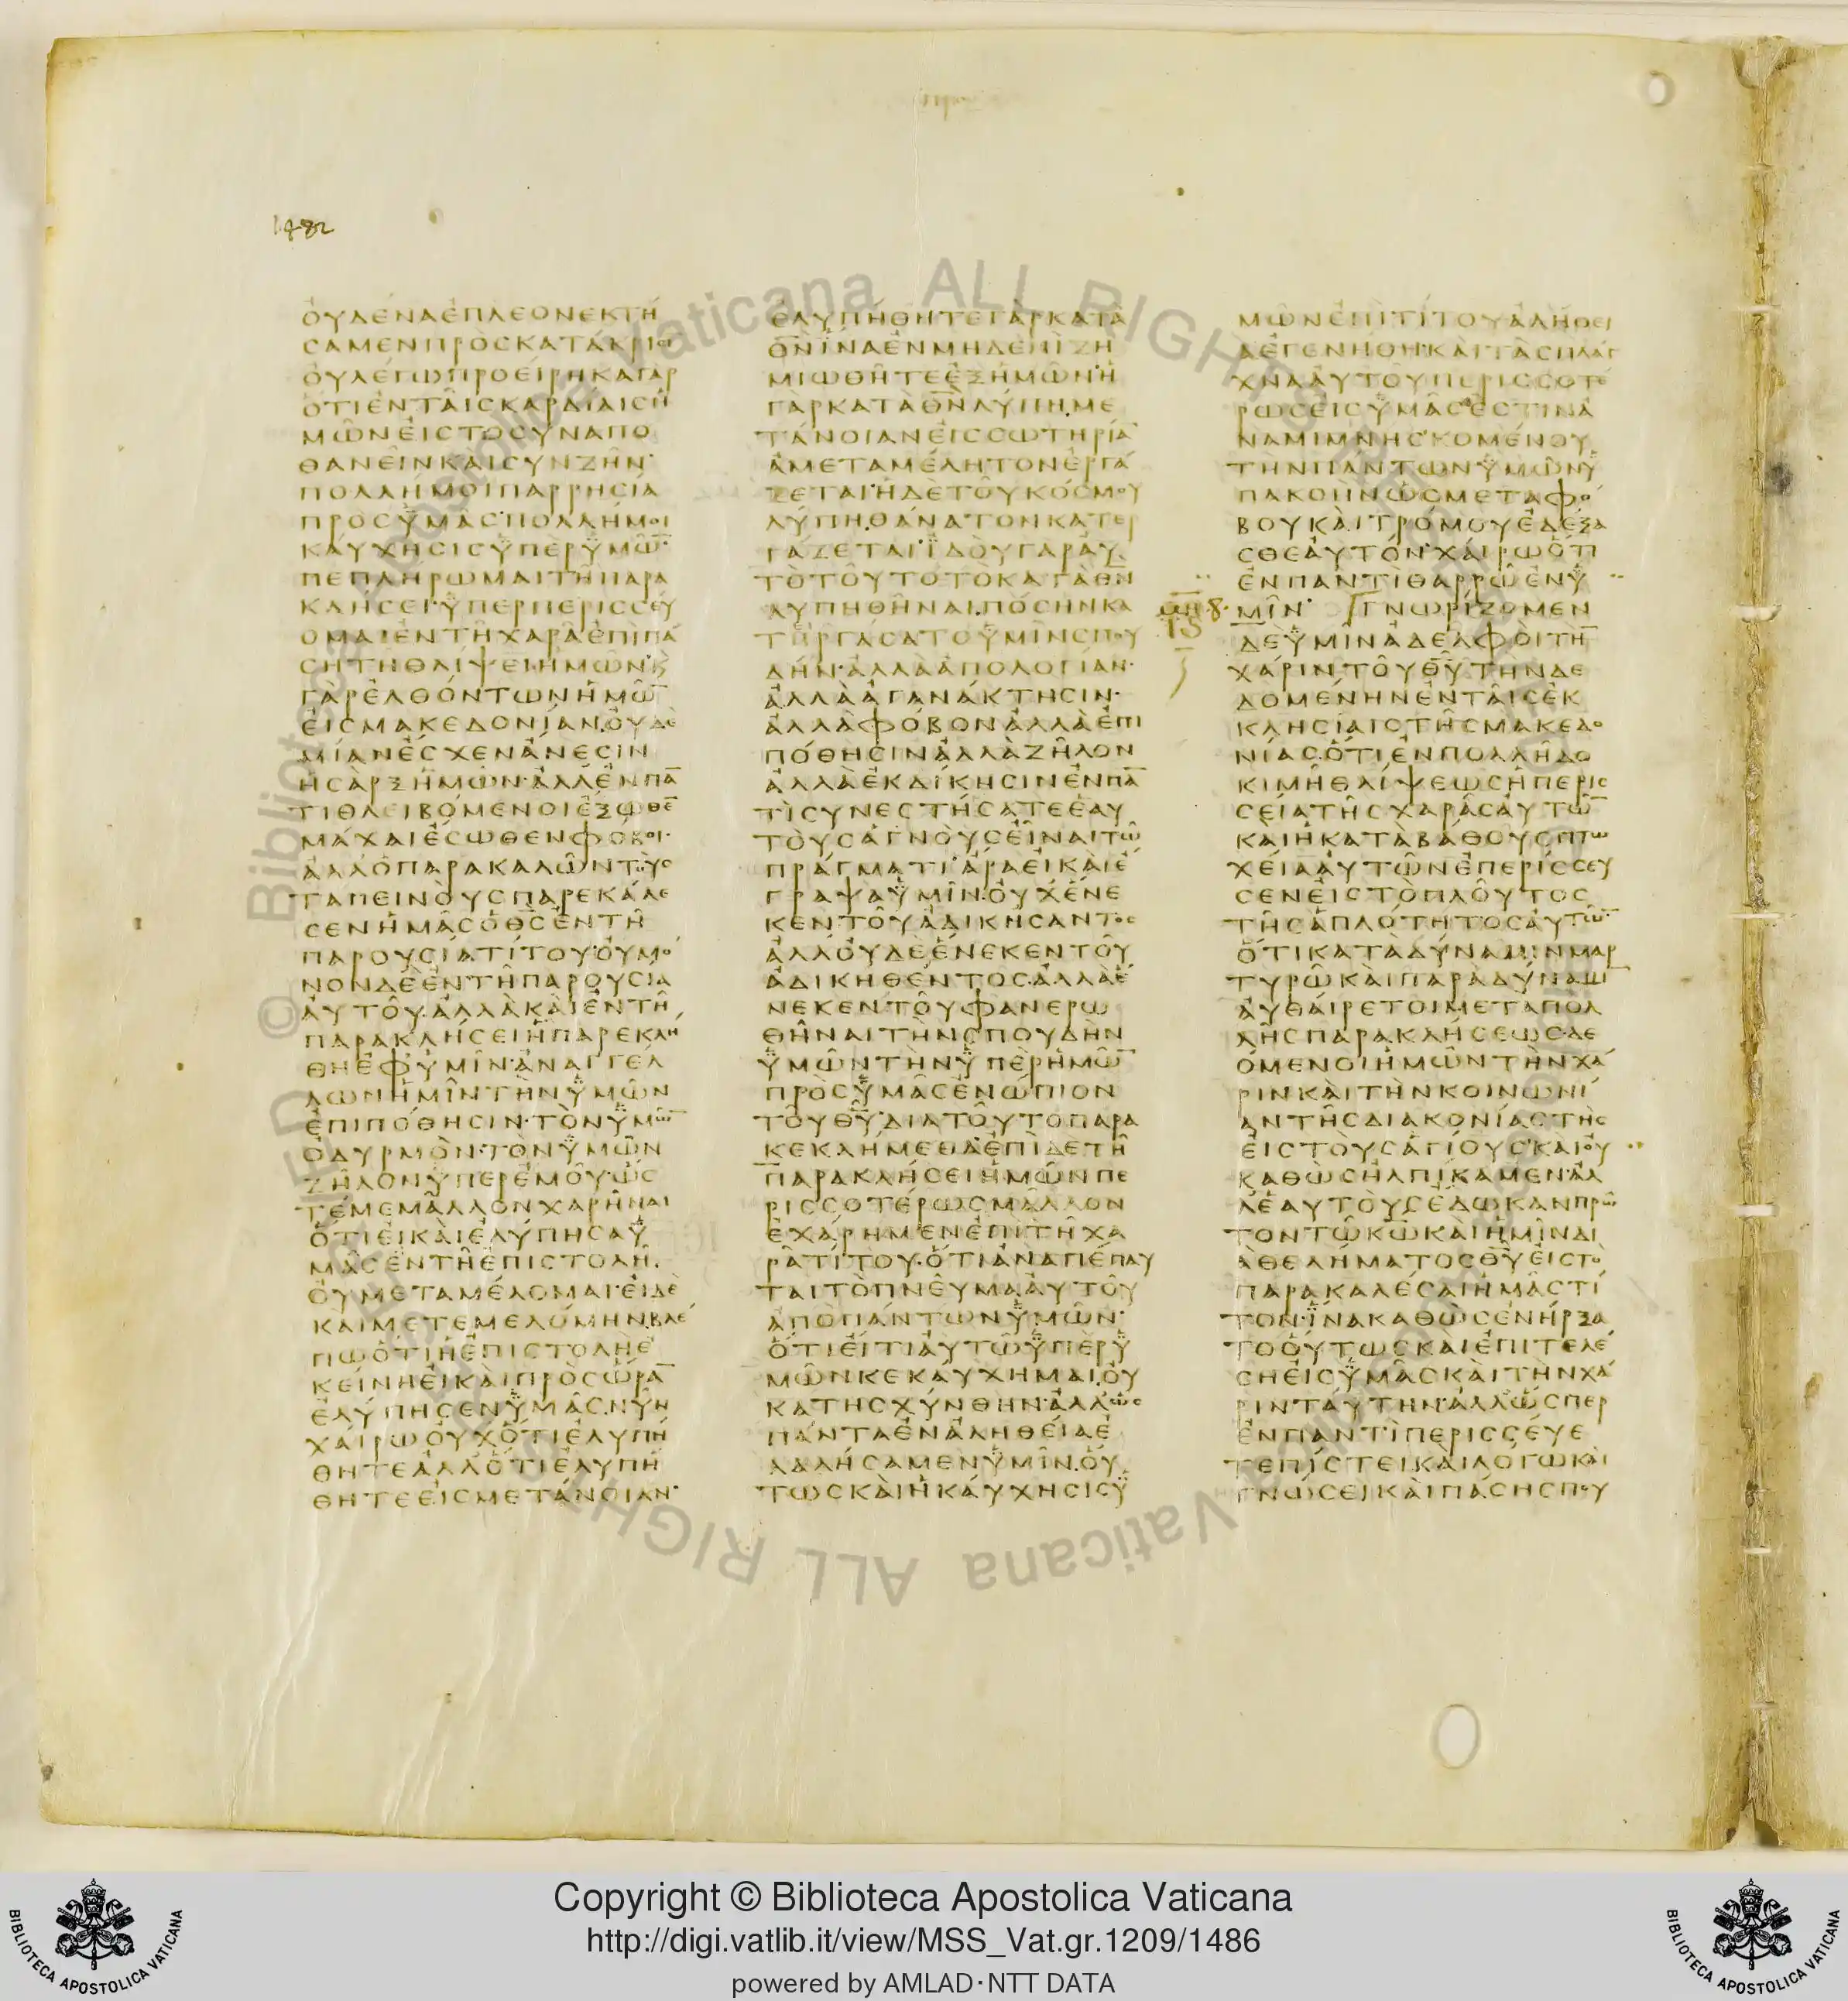 1482
ΟΥΔΕΝΑΕΠΛΕΟΝΕΚΤΗ
ΣΑΜΕΝΠΡΟΣΚΑΤΑΚΡΙΣΙ
ΟΥΛΕΓΩΠΡΟΕΙΡΗΚΑΓΑΡ
ΟΤΙΕΝΤΑΙΣΚΑΡΔΙΑΙΣΗ
ΜΩΝΕΙΣΤΟΣΥΝΑΠΟ
ΘΑΝΕΙΝΚΑΙΣΥΝΖΗΝ·
ΠΟΛΛΗΜΟΙΠΑΡΡΗΣΙΑ
ΠΡΟΣΫΜΑΣ·ΠΟΛΛΗΜΟΙ
ΚΑΥΧΗΣΙΣΫΠΕΡΫΜΩ̅·
ΠΕΠΛΗΡΩΜΑΙΤΗΠΑΡΑ
ΚΛΗΣΕΙ·ΫΠΕΡΠΕΡΙΣΣΕΥ
ΟΜΑΙΕΝΤΗΧΑΡΑΕΠΙΠΑ
ΣΗΤΗΘΛΙΨΕΙΗΜΩΝ·Κ
ΓΑΡΕΛΘΟΝΤΩΝΗΜΩ̅
ΕΙΣΜΑΚΕΔΟΝΙΑΝ.ΟΥΔΕ
ΜΙΑΝΕΣΧΕΝΑΝΕΣΙΝ
ΗΣΑΡΞΗΜΩΝ·ΑΛΛΕΝΠΑ̅
ΤΙΘΛΕΙΒΟΜΕΝΟΙΕΞΩΘΕ̅
ΜΑΧΑΙΕΣΩΘΕΝΦΟΒΟΙ·
ΑΛΛΟΠΑΡΑΚΑΛΩΝΤΟΥΣ
ΤΑΠΕΙΝΟΥΣΠΑΡΕΚΑΛΕ
ΣΕΝΗΜΑΣΟΘ̅Σ̅ΕΝΤΗ
ΠΑΡΟΥΣΙΑΤΙΤΟΥ·ΟΥΜΟ
ΝΟΝΔΕΕΝΤΗΠΑΡΟΥΣΙΑ
ΑΥΤΟΥ.ΑΛΛΑΚΑΙΕΝΤΗ
ΠΑΡΑΚΛΗΣΕΙΗΠΑΡΕΚΛΗ
ΘΗΕΦΫΜΙΝ·ΑΝΑΓΓΕΛ
ΛΩΝΗΜΙΝΤΗΝΫΜΩΝ
ΕΠΙΠΟΘΗΣΙΝ·ΤΟΝΫΜΩ̅
ΟΔΥΡΜΟΝ·ΤΟΝΫΜΩΝ
ΖΗΛΟΝΫΠΕΡΕΜΟΥ·ΩΣ
ΤΕΜΕΜΑΛΛΟΝΧΑΡΗΝΑΙ
ΟΤΙΕΙΚΑΙΕΛΥΠΗΣΑΫ
ΜΑΣΕΝΤΗΕΠΙΣΤΟΛΗ.
ΟΥΜΕΤΑΜΕΛΟΜΑΙ·ΕΙΔΕ
ΚΑΙΜΕΤΕΜΕΛΟΜΗΝ.ΒΛΕ
ΠΩΟΤΙΗΕΠΙΣΤΟΛΗΕ
ΚΕΙΝΗΕΙΚΑΙΠΡΟΣΩΡΑ̅
ΕΛΥΠΗΣΕΝΫΜΑΣ.ΝΥΝ
ΧΑΙΡΩΟΥΧΟΤΙΕΛΥΠΗ
ΘΗΤΕΑΛΛΟΤΙΕΛΥΠΗ
ΘΗΤΕΕΙΣΜΕΤΑΝΟΙΑΝ·
ΕΛΥΠΗΘΗΤΕΓΑΡΚΑΤΑ
Θ̅Ν̅ΙΝΑΕΝΜΗΔΕΝΙΖΗ
ΜΙΩΘΗΤΕΕΞΗΜΩΝ·Η
ΓΑΡΚΑΤΑΘ̅Ν̅ΛΥΠΗ.ΜΕ
ΤΑΝΟΙΑΝΕΙΣΣΩΤΗΡΙΑ̅
ΑΜΕΤΑΜΕΛΗΤΟΝΕΡΓΑ
ΖΕΤΑΙ·ΗΔΕΤΟΥΚΟΣΜΟΥ
ΛΥΠΗ.ΘΑΝΑΤΟΝΚΑΤΕΡ
ΓΑΖΕΤΑΙ·ΪΔΟΥΓΑΡΑΥ
ΤΟΤΟΥΤΟΤΟΚΑΤΑΘ̅Ν̅
ΛΥΠΗΘΗΝΑΙ.ΠΟΣΗΝΚΑ
ΤΗΡΓΑΣΑΤΟΫΜΙΝΣΠΟΥ
ΔΗΝ·ΑΛΛΑΑΠΟΛΟΓΙΑΝ·
ΑΛΛΑΑΓΑΝΑΚΤΗΣΙΝ·
ΑΛΛΑΦΟΒΟΝΑΛΛΑΕΠΙ
ΠΟΘΗΣΙΝΑΛΛΑΖΗΛΟΝ
ΑΛΛΑΕΚΔΙΚΗΣΙΝΕΝΠΑ̅
ΤΙΣΥΝΕΣΤΗΣΑΤΕΕΑΥ
ΤΟΥΣΑΓΝΟΥΣΕΙΝΑΙΤΩ
ΠΡΑΓΜΑΤΙ·ΑΡΑΕΙΚΑΙΕ
ΓΡΑΨΑΫΜΙΝ.ΟΥΧΕΝΕ
ΚΕΝΤΟΥΑΔΙΚΗΣΑΝΤΟΣ
ΑΛΛΟΥΔΕΕΝΕΚΕΝΤΟΥ
ΑΔΙΚΗΘΕΝΤΟΣ.ΑΛΛΑΕ
ΝΕΚΕΝΤΟΥΦΑΝΕΡΩ
ΘΗΝΑΙΤΗΝΣΠΟΥΔΗΝ
ΫΜΩΝΤΗΝΫΠΕΡΗΜΩ̅
ΠΡΟΣΫΜΑΣΕΝΩΠΙΟΝ
ΤΟΥΘ̅Υ̅·ΔΙΑΤΟΥΤΟΠΑΡΑ
ΚΕΚΛΗΜΕΘΑ·ΕΠΙΔΕΤΗ
ΠΑΡΑΚΛΗΣΕΙΗΜΩΝΠΕ
ΡΙΣΣΟΤΕΡΩΣΜΑΛΛΟΝ
ΕΧΑΡΗΜΕΝΕΠΙΤΗΧΑ
ΡΑΤΙΤΟΥ·ΟΤΙΑΝΑΠΕΠΑΥ
ΤΑΙΤΟΠΝΕΥΜΑΑΥΤΟΥ
ΑΠΟΠΑΝΤΩΝΫΜΩΝ·
ΟΤΙΕΙΤΙΑΥΤΩΫΠΕΡΫ
ΜΩΝΚΕΚΑΥΧΗΜΑΙ.ΟΥ
ΚΑΤΗΣΧΥΝΘΗΝ·ΑΛΛΩΣ
ΠΑΝΤΑΕΝΑΛΗΘΕΙΑΕ
ΛΑΛΗΣΑΜΕΝΫΜΙΝ.ΟΥ
ΤΩΣΚΑΙΗΚΑΥΧΗΣΙΣΫ
ΜΩΝΕΠΙΤΙΤΟΥΑΛΗΘΕΙ
ΑΕΓΕΝΗΘΗ·ΚΑΙΤΑΣΠΛΑΓ
ΧΝΑΑΥΤΟΥΠΕΡΙΣΣΟΤΕ
ΡΩΣΕΙΣΫΜΑΣΕΣΤΙΝΑ
ΝΑΜΙΜΝΗΣΚΟΜΕΝΟΥ
ΤΗΝΠΑΝΤΩΝΫΜΩΝΫ
ΠΑΚΟΗΝΩΣΜΕΤΑΦΟ
ΒΟΥΚΑΙΤΡΟΜΟΥΕΔΕΞΑ
ΣΘΕΑΥΤΟΝ·ΧΑΙΡΩΟΤΙ
ΕΝΠΑΝΤΙΘΑΡΡΩΕΝΫ
ΜΙΝ· ΓΝΩΡΙΖΟΜΕΝ
ΔΕΫΜΙΝΑΔΕΛΦΟΙΤΗ̅
ΧΑΡΙΝΤΟΥΘ̅Υ̅ΤΗΝΔΕ
ΔΟΜΕΝΗΝΕΝΤΑΙΣΕΚ
ΚΛΗΣΙΑΙΣΤΗΣΜΑΚΕΔΟ
ΝΙΑΣ.ΟΤΙΕΝΠΟΛΛΗΔΟ
ΚΙΜΗΘΛΙΨΕΩΣΗΠΕΡΙΣ
ΣΕΙΑΤΗΣΧΑΡΑΣΑΥΤΩ̅
ΚΑΙΗΚΑΤΑΒΑΘΟΥΣΠΤΩ
ΧΕΙΑΑΥΤΩΝΕΠΕΡΙΣΣΕΥ
ΣΕΝΕΙΣΤΟΠΛΟΥΤΟΣ
ΤΗΣΑΠΛΟΤΗΤΟΣΑΥΤΩ̅·
ΟΤΙΚΑΤΑΔΥΝΑΜΙΝΜΑΡ
ΤΥΡΩΚΑΙΠΑΡΑΔΥΝΑΜΙ̅
ΑΥΘΑΙΡΕΤΟΙΜΕΤΑΠΟΛ
ΛΗΣΠΑΡΑΚΛΗΣΕΩΣ·ΔΕ
ΟΜΕΝΟΙΗΜΩΝΤΗΝΧΑ
ΡΙΝΚΑΙΤΗΝΚΟΙΝΩΝΙ
ΑΝΤΗΣΔΙΑΚΟΝΙΑΣΤΗΣ
ΕΙΣΤΟΥΣΑΓΙΟΥΣ·ΚΑΙΟΥ
ΚΑΘΩΣΗΛΠΙΚΑΜΕΝ·ΑΛ
ΛΕΑΥΤΟΥΣΕΔΩΚΑΝΠΡΩ
ΤΟΝΤΩΚ̅Ω̅ΚΑΙΗΜΙΝΔΙ
ΑΘΕΛΗΜΑΤΟΣΘ̅Υ̅ΕΙΣΤΟ
ΠΑΡΑΚΑΛΕΣΑΙΗΜΑΣΤΙ
ΤΟΝ·ΪΝΑΚΑΘΩΣΕΝΗΡΞΑ
ΤΟΟΥΤΩΣΚΑΙΕΠΙΤΕΛΕ
ΣΗΕΙΣΫΜΑΣΚΑΙΤΗΝΧΑ
ΡΙΝΤΑΥΤΗΝ·ΑΛΛΩΣΠΕΡ
ΕΝΠΑΝΤΙΠΕΡΙΣΣΕΥΕ
ΤΕΠΙΣΤΕΙΚΑΙΛΟΓΩΚΑΙ
ΓΝΩΣΕΙΚΑΙΠΑΣΗΣΠΟΥ
© Biblioteca Apostolica Vaticana ALL RIGHTS RESERVED
Copyright © Biblioteca Apostolica Vaticana
http://digi.vatlib.it/view/MSS_Vat.gr.1209/1486
powered by AMLAD·NTT DATA
BIBLIOTECA APOSTOLICA VATICANA
BIBLIOTECA APOSTOLICA VATICANA